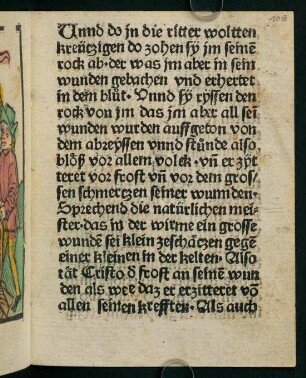 Unnd do in die ritter woltten
kreützigen do zohen sÿ jm seinē
rock ab · der was jm aber in sein
wunden gebachen vnd erhertet
in dem blůt · Vnnd sÿ ryssen den
rock von jm das jm aber all sei
wunden wurden auffgeton von
dem abreyssen vnnd stůnde also
blöß vor allem volck · vn̄ er zÿt
teret vor frost vn̄ vor dem gros/
sen schmertzen seiner wunden ·
Sprechend die natürlichen mei/
ster · das in der wirme ein grosse
wundē sei klein zeschäczen gegē
einer kleinen in der kelten · Also
tät Cristo d̄ frost an seinē wun
den als wee daz er erzitteret vō
allen seinen krefften · Als auch